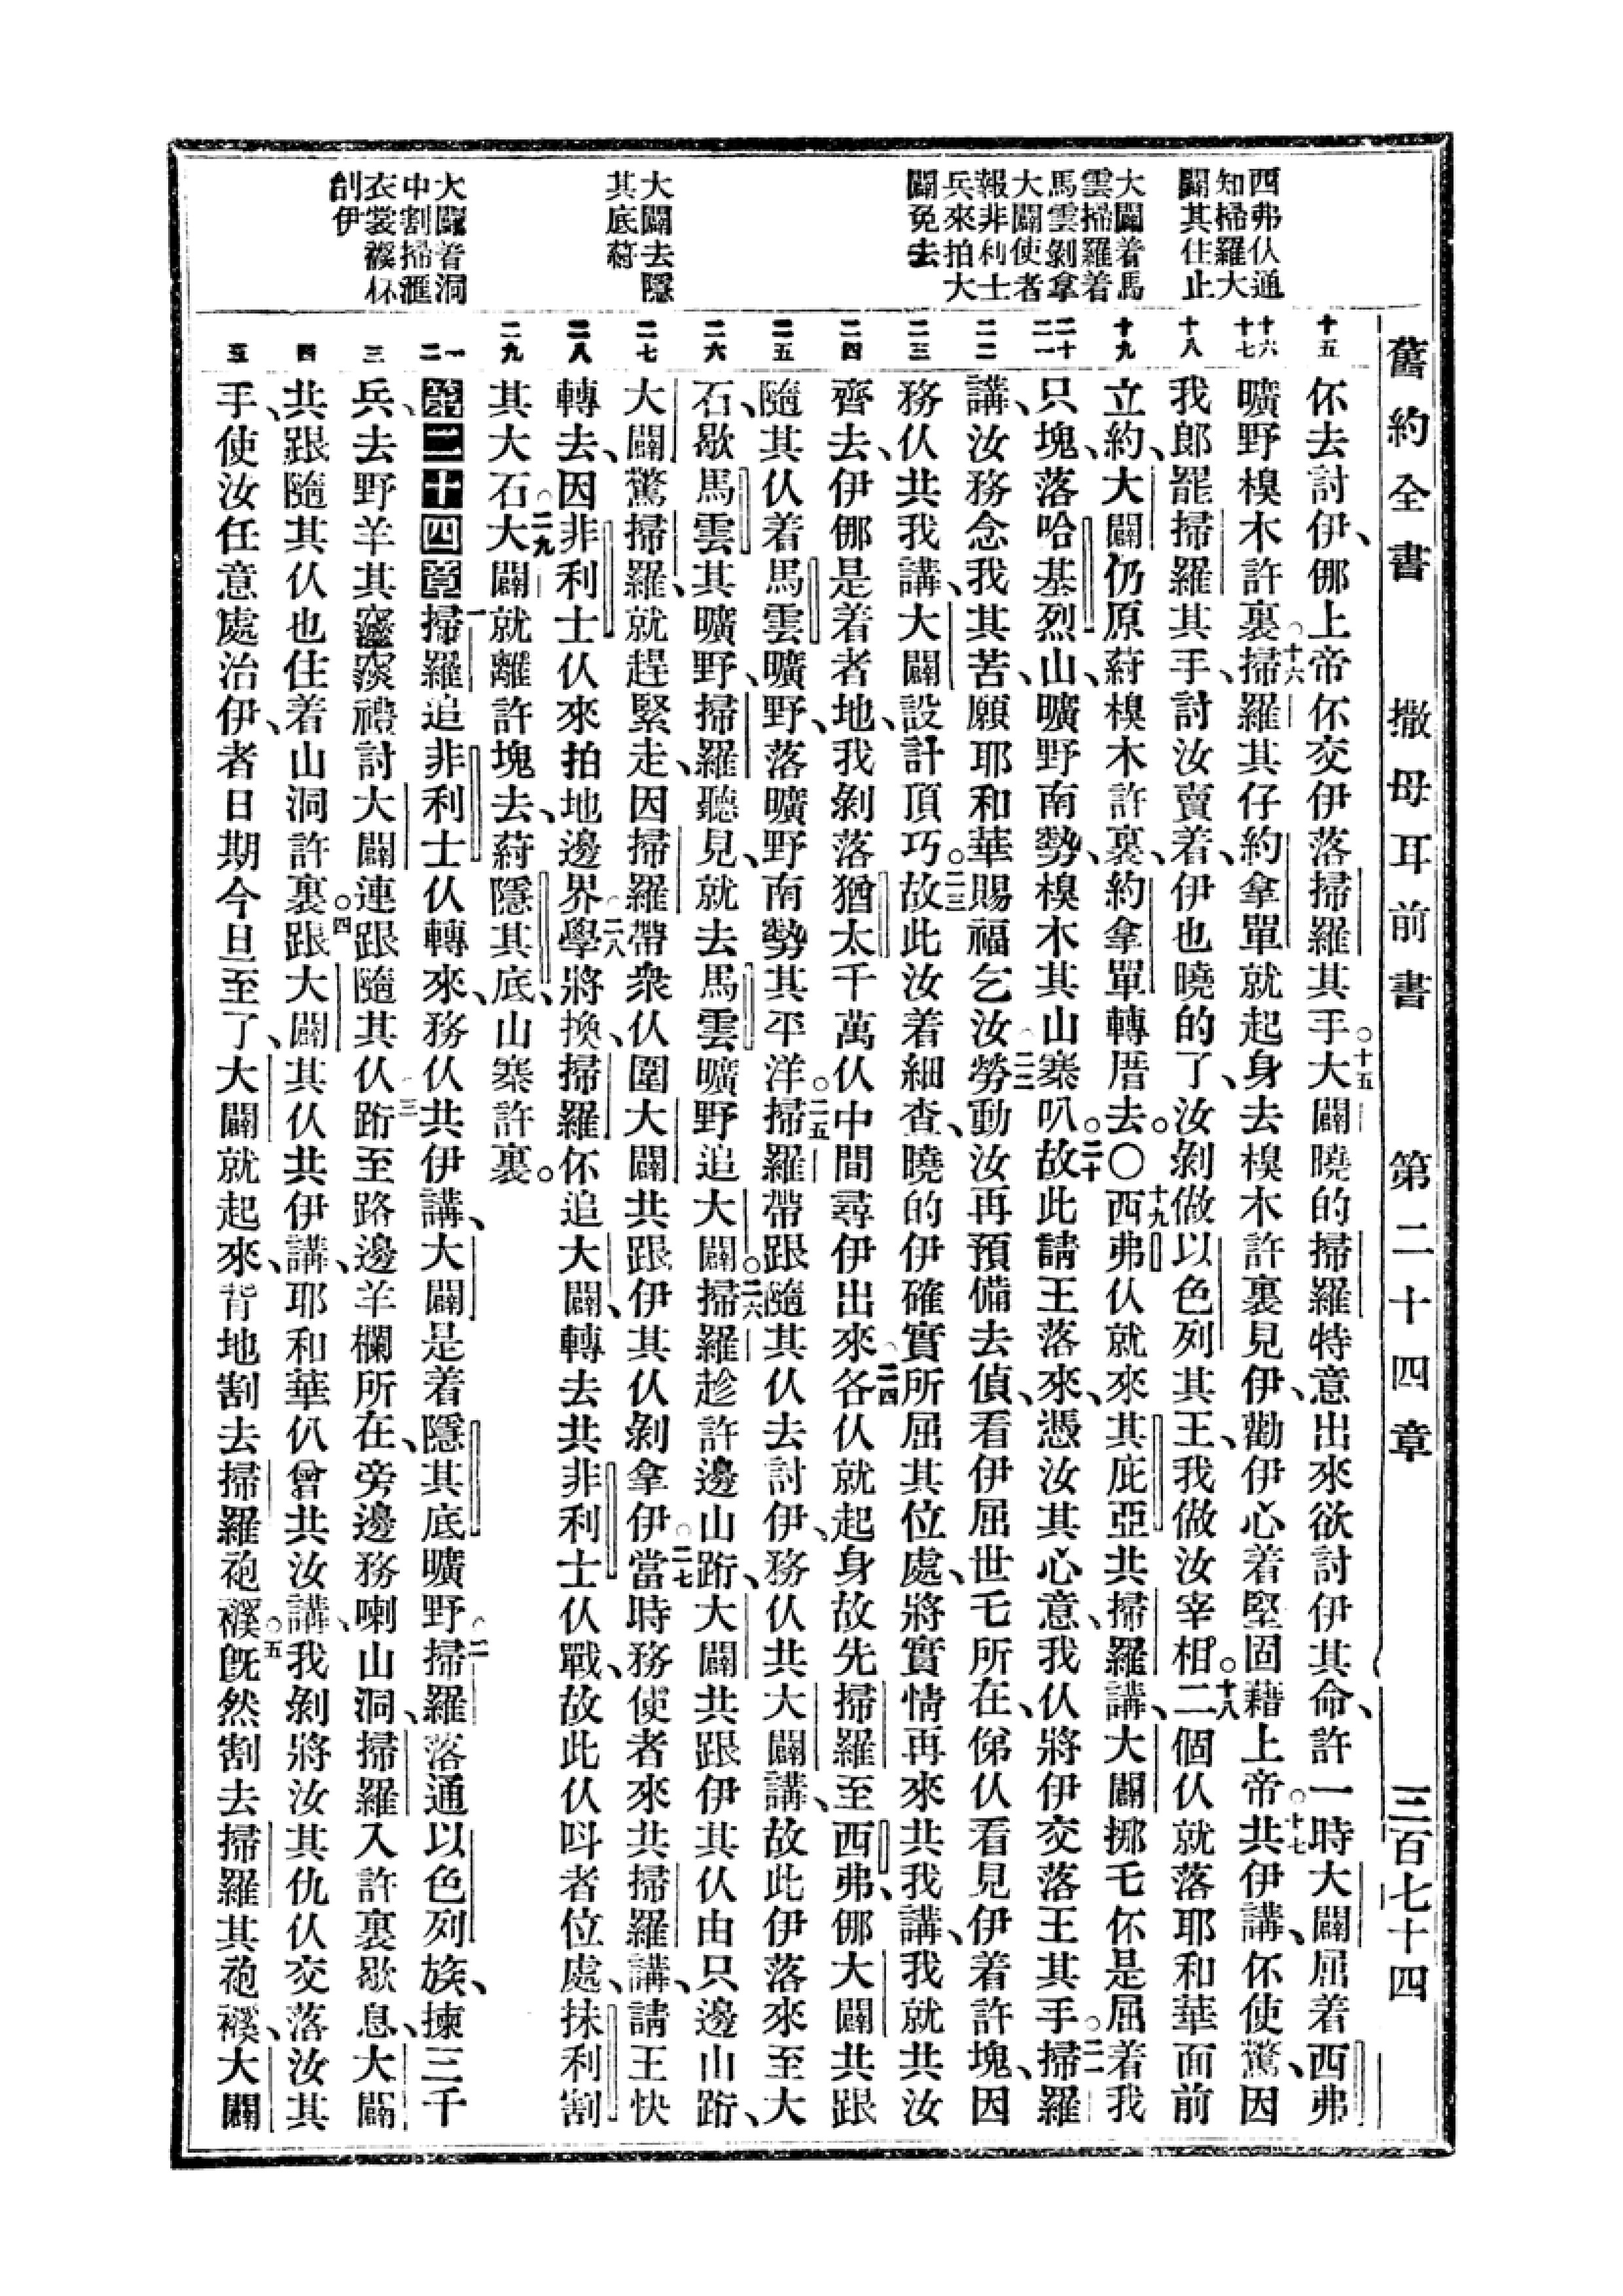 舊約全書 撒母耳前書 第二十四章 三百七十四
西弗仈通
知掃羅大
闢其住止
大闢着馬
雲掃羅着
馬雲剝拿
大闢使者
報非利士
兵來拍大
闢免去
大闢去隱
其底蔚
大闢着洞
中割掃羅
衣裳
刣伊
十五
十六
十七
十八
十九
二十
二一
二二
二三
二四
二五
二六
二七
二八
二九
一
二
三
四
五
伓去討伊、㑚上帝伓交伊落掃羅其手。十五大闢曉的掃羅特意出來欲討伊其命、許一時大闢屈着西弗
曠野樉木許裏。十六掃羅其仔約拿單就起身去樉木許裏見伊、勸伊心着堅固藉上帝。十七共伊講、伓使驚、因
我郎罷掃羅其手、討汝賣着、伊也曉的了、汝剝做以色列其王、我做汝宰相。十八二個仈就落耶和華面前
立約、大闢仍原蔚樉木許裏、約拿單轉厝去。〇十九西弗仈就來其庇亞共掃羅講、大闢挪乇伓是屈着我
只塊、落哈基烈山、曠野南勢、樉木其山寨叭。二十故此請王落來、憑汝其心意、我仈將伊交落王其手。二一掃羅
講、汝務念我其苦、願耶和華賜福乞汝。二二勞動汝再預備去偵、看伊屈世乇所在、俤仈看見伊着許塊、因
務仈共我講、大闢設計頂巧。二三故此汝着細查、曉的伊確實所屈其位處、將實情再來共我講、我就共汝
齊去、伊㑚是着者地、我剝落猶太千萬仈中間尋伊出來。二四各仈就起身故先掃羅至西弗、㑚大闢共跟
隨其仈着馬雲曠野、落曠野南勢其平洋。二五掃羅帶跟隨其仈去討伊、務仈共大闢講、故此伊落來至大
石、歇馬雲其曠野、掃羅聽見、就去馬雲曠野追大闢。二六掃羅趁許邊山跡、大闢共跟伊其仈由只邊山跡、
大闢驚掃羅、就趕緊走、因掃羅帶衆仈圍大闢共跟伊其仈剝拿伊。二七當時務使者來共掃羅講、請王快
轉去、因非利士仈來拍地邊界。二八學將換、掃羅伓追大闢、轉去共非利士仈戰、故此仈呌者位處、抹利割
其大石。二九大闢就離許塊去、蔚隱其底、山寨許裏。
第二十四章 一掃羅追非利士仈轉來、務仈共伊講、大闢是着隱其底曠野。二掃羅落通以色列族、揀三千
兵、去野羊其討大闢連跟隨其仈。三跡至路邊羊欄所在、旁邊務喇山洞、掃羅入許裏歇息、大闢
共跟隨其仈也住着山洞許裏。四跟大闢其仈共伊講、耶和華仈曾共汝講、我剝將汝其仇仈交落汝其
手、使汝任意處治伊、者日期今旦至了、大闢就起來、背地割去掃羅袍。五旣然割去掃羅其袍、大闢